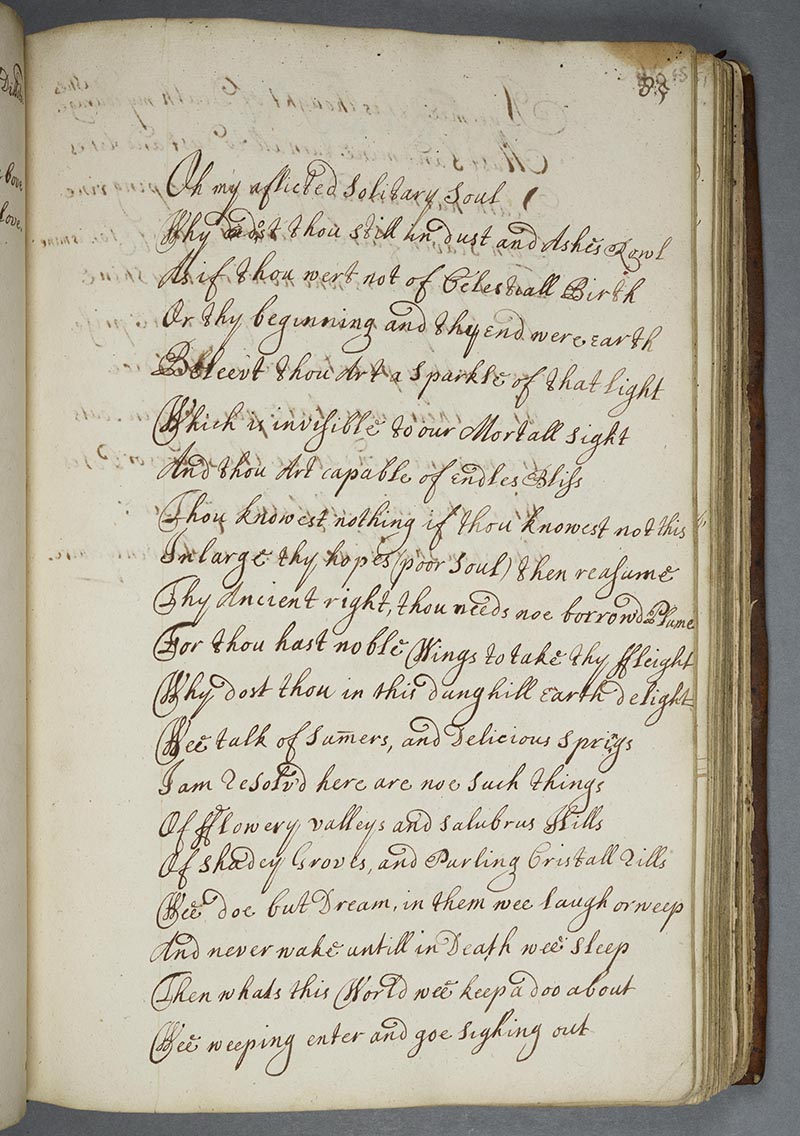 85
Oh my aflicted solitary soul
Why dost thou still in dust and Ashes Rowl
As if thou wert not of Celestiall Birth
Or thy beginning and thy End were Earth
Beleev't thou Art a sparkle of that light
Which is invisible to our Mortall sight
And thou Art capable of Endles Bliss
Thou knowest nothing if thou knowest not this
Inlarge thy hopes (poor soul) then reasume
Thy Ancient right, thou needs noe borrowd Plume
For thou hast noble Wings to take thy ffleight
Why dost thou in this dunghill Earth delight
Wee talk of sum̄ers, and Delicious springs
I am Resolv'd here are noe such things
Of fflowery valleys and salubrus Hills
Of shadey Groves, and Purling Cristall Rills
Wee doe but Dream, in them wee laugh or weep
And never wake untill in Death wee sleep
Then whats this World wee keep adoo about
Wee weeping enter and goe sighing out